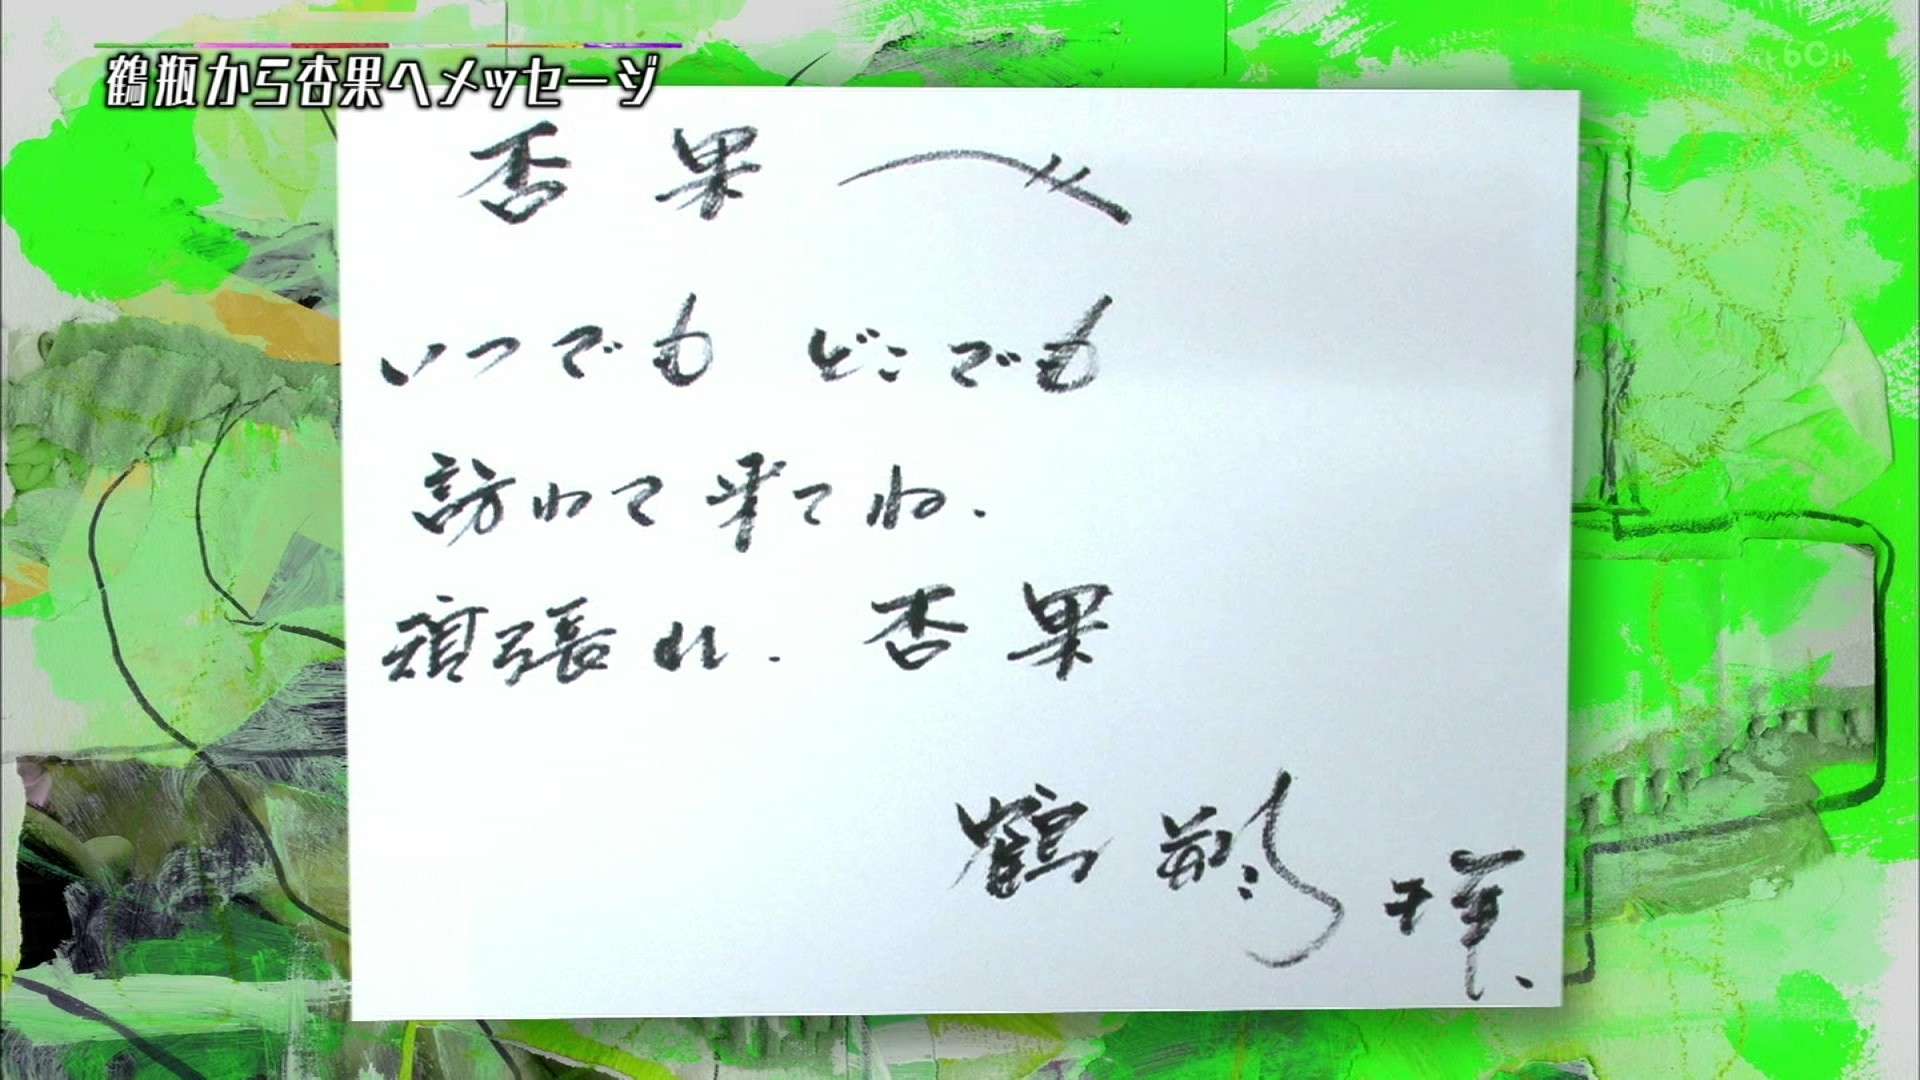 鶴瓶から杏果へメッセージ
60th
杏果へ
いつでも どこでも
訪わて来てね.
頑張れ. 杏果
鶴瓶